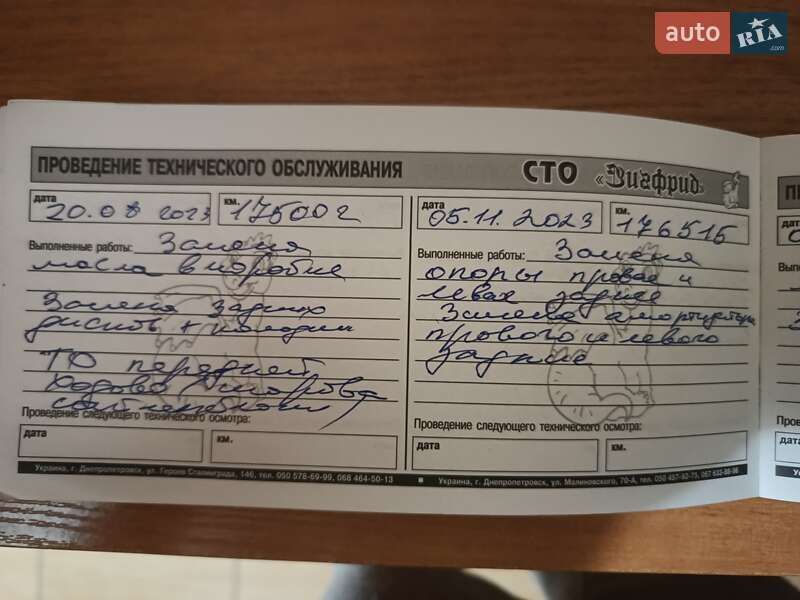 auto RIA.com
ПРОВЕДЕНИЕ ТЕХНИЧЕСКОГО ОБСЛУЖИВАНИЯ СТО «Зигфрид»
дата 20.08 2023 км. 175002
Выполненные работы: Замена
масла в коробке
Замена задних
дисков + колодки
ТО передней
Проведение следующего технического осмотра:
дата км.
Украина, г. Днепропетровск, ул. Героев Сталинграда, 146, тел. 050 578-69-99, 068 464-50-13
дата 05.11.2023 км. 176515
Выполненные работы: Замена
опоры правая и
левая задние
Замена амортизатора
правого и левого
задние
Проведение следующего технического осмотра:
дата км.
Украина, г. Днепропетровск, ул. Малиновского, 70-А, тел.